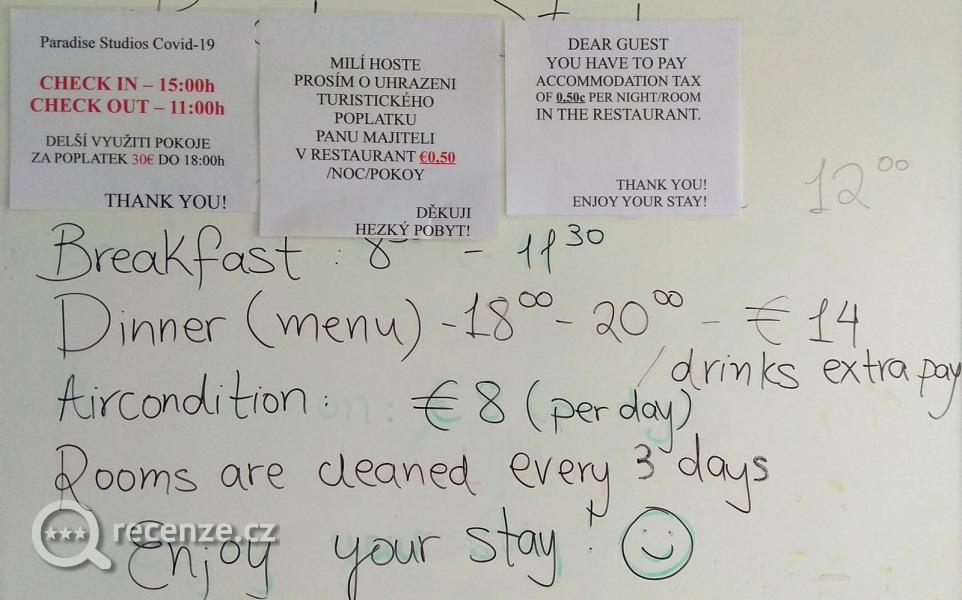 Paradise Studios Covid-19
CHECK IN – 15:00h
CHECK OUT – 11:00h
DELŠÍ VYUŽITI POKOJE
ZA POPLATEK 30€ DO 18:00h
THANK YOU!
MILÍ HOSTE
PROSÍM O UHRAZENI
TURISTICKÉHO
POPLATKU
PANU MAJITELI
V RESTAURANT €0,50
/NOC/POKOY
DĚKUJI
HEZKÝ POBYT!
DEAR GUEST
YOU HAVE TO PAY
ACCOMMODATION TAX
OF 0,50c PER NIGHT/ROOM
IN THE RESTAURANT.
THANK YOU!
ENJOY YOUR STAY!
12 00
Breakfast : 8 - 11 30
Dinner (menu) - 18 00 - 20 00 - € 14
/ drinks extra pay
Aircondition: € 8 (per day)
Rooms are cleaned every 3 days
Enjoy your stay!
recenze.cz